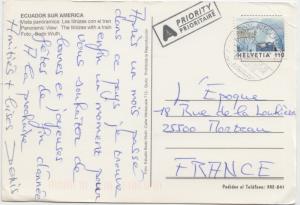 ECUADOR SUR AMERICA
Vista panorámica: Las llinizas con el tren
Panoramic View: The llinizas with a train
Foto: Beda Wuth
A PRIORITY
PRIORITAIRE
HELVETIA 110
Après un mois passé
dans ce pays je trouve
enfin un moment pour
vous souhaiter de
bonnes et joyeuses
fêtes de fin d'année
A la prochaine
Amitiés + bises
L'Époque
18 Rue de la Louhière
25500 Morteau
FRANCE
Pedidos al Teléfono: